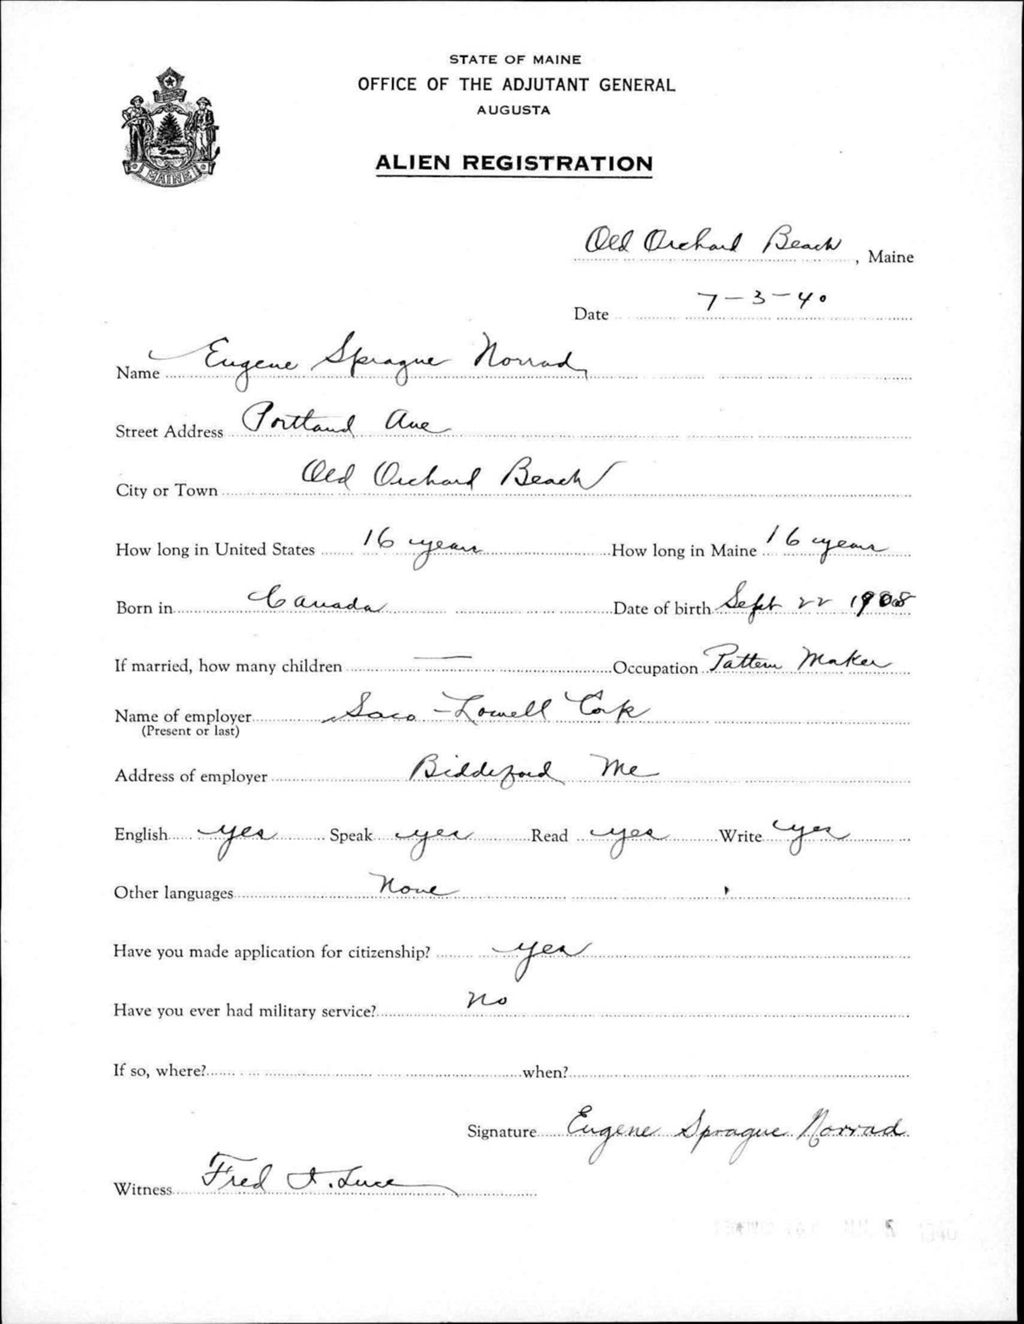 STATE OF MAINE
OFFICE OF THE ADJUTANT GENERAL
AUGUSTA
MAINE
ALIEN REGISTRATION
Old Orchard Beach, Maine
Date 7-3-40
Name Eugene Sprague Norrad
Street Address Portland Ave
City or Town Old Orchard Beach
How long in United States 16 years How long in Maine 16 years
Born in Canada Date of birth Sept 22 1908
If married, how many children — Occupation Pattern Maker
Name of employer Saco-Lowell
(Present or last)
Address of employer Biddeford Me
English yes Speak yes Read yes Write yes
Other languages None
Have you made application for citizenship? yes
Have you ever had military service? no
If so, where? when?
Signature Eugene Sprague Norrad
Witness Fred I. Luce